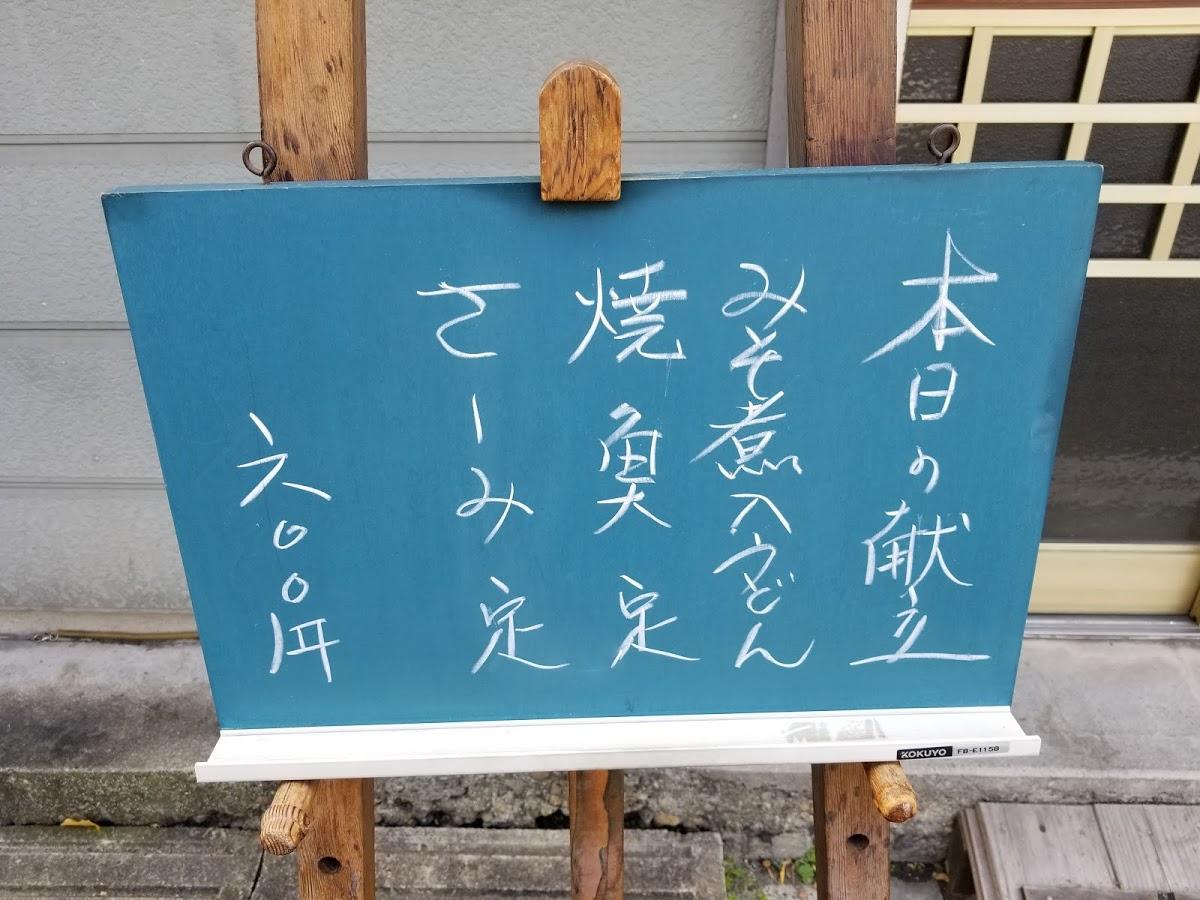 本日の献立
みそ煮入うどん
焼魚定
さしみ定
六〇〇円
KOKUYO FB-E115B